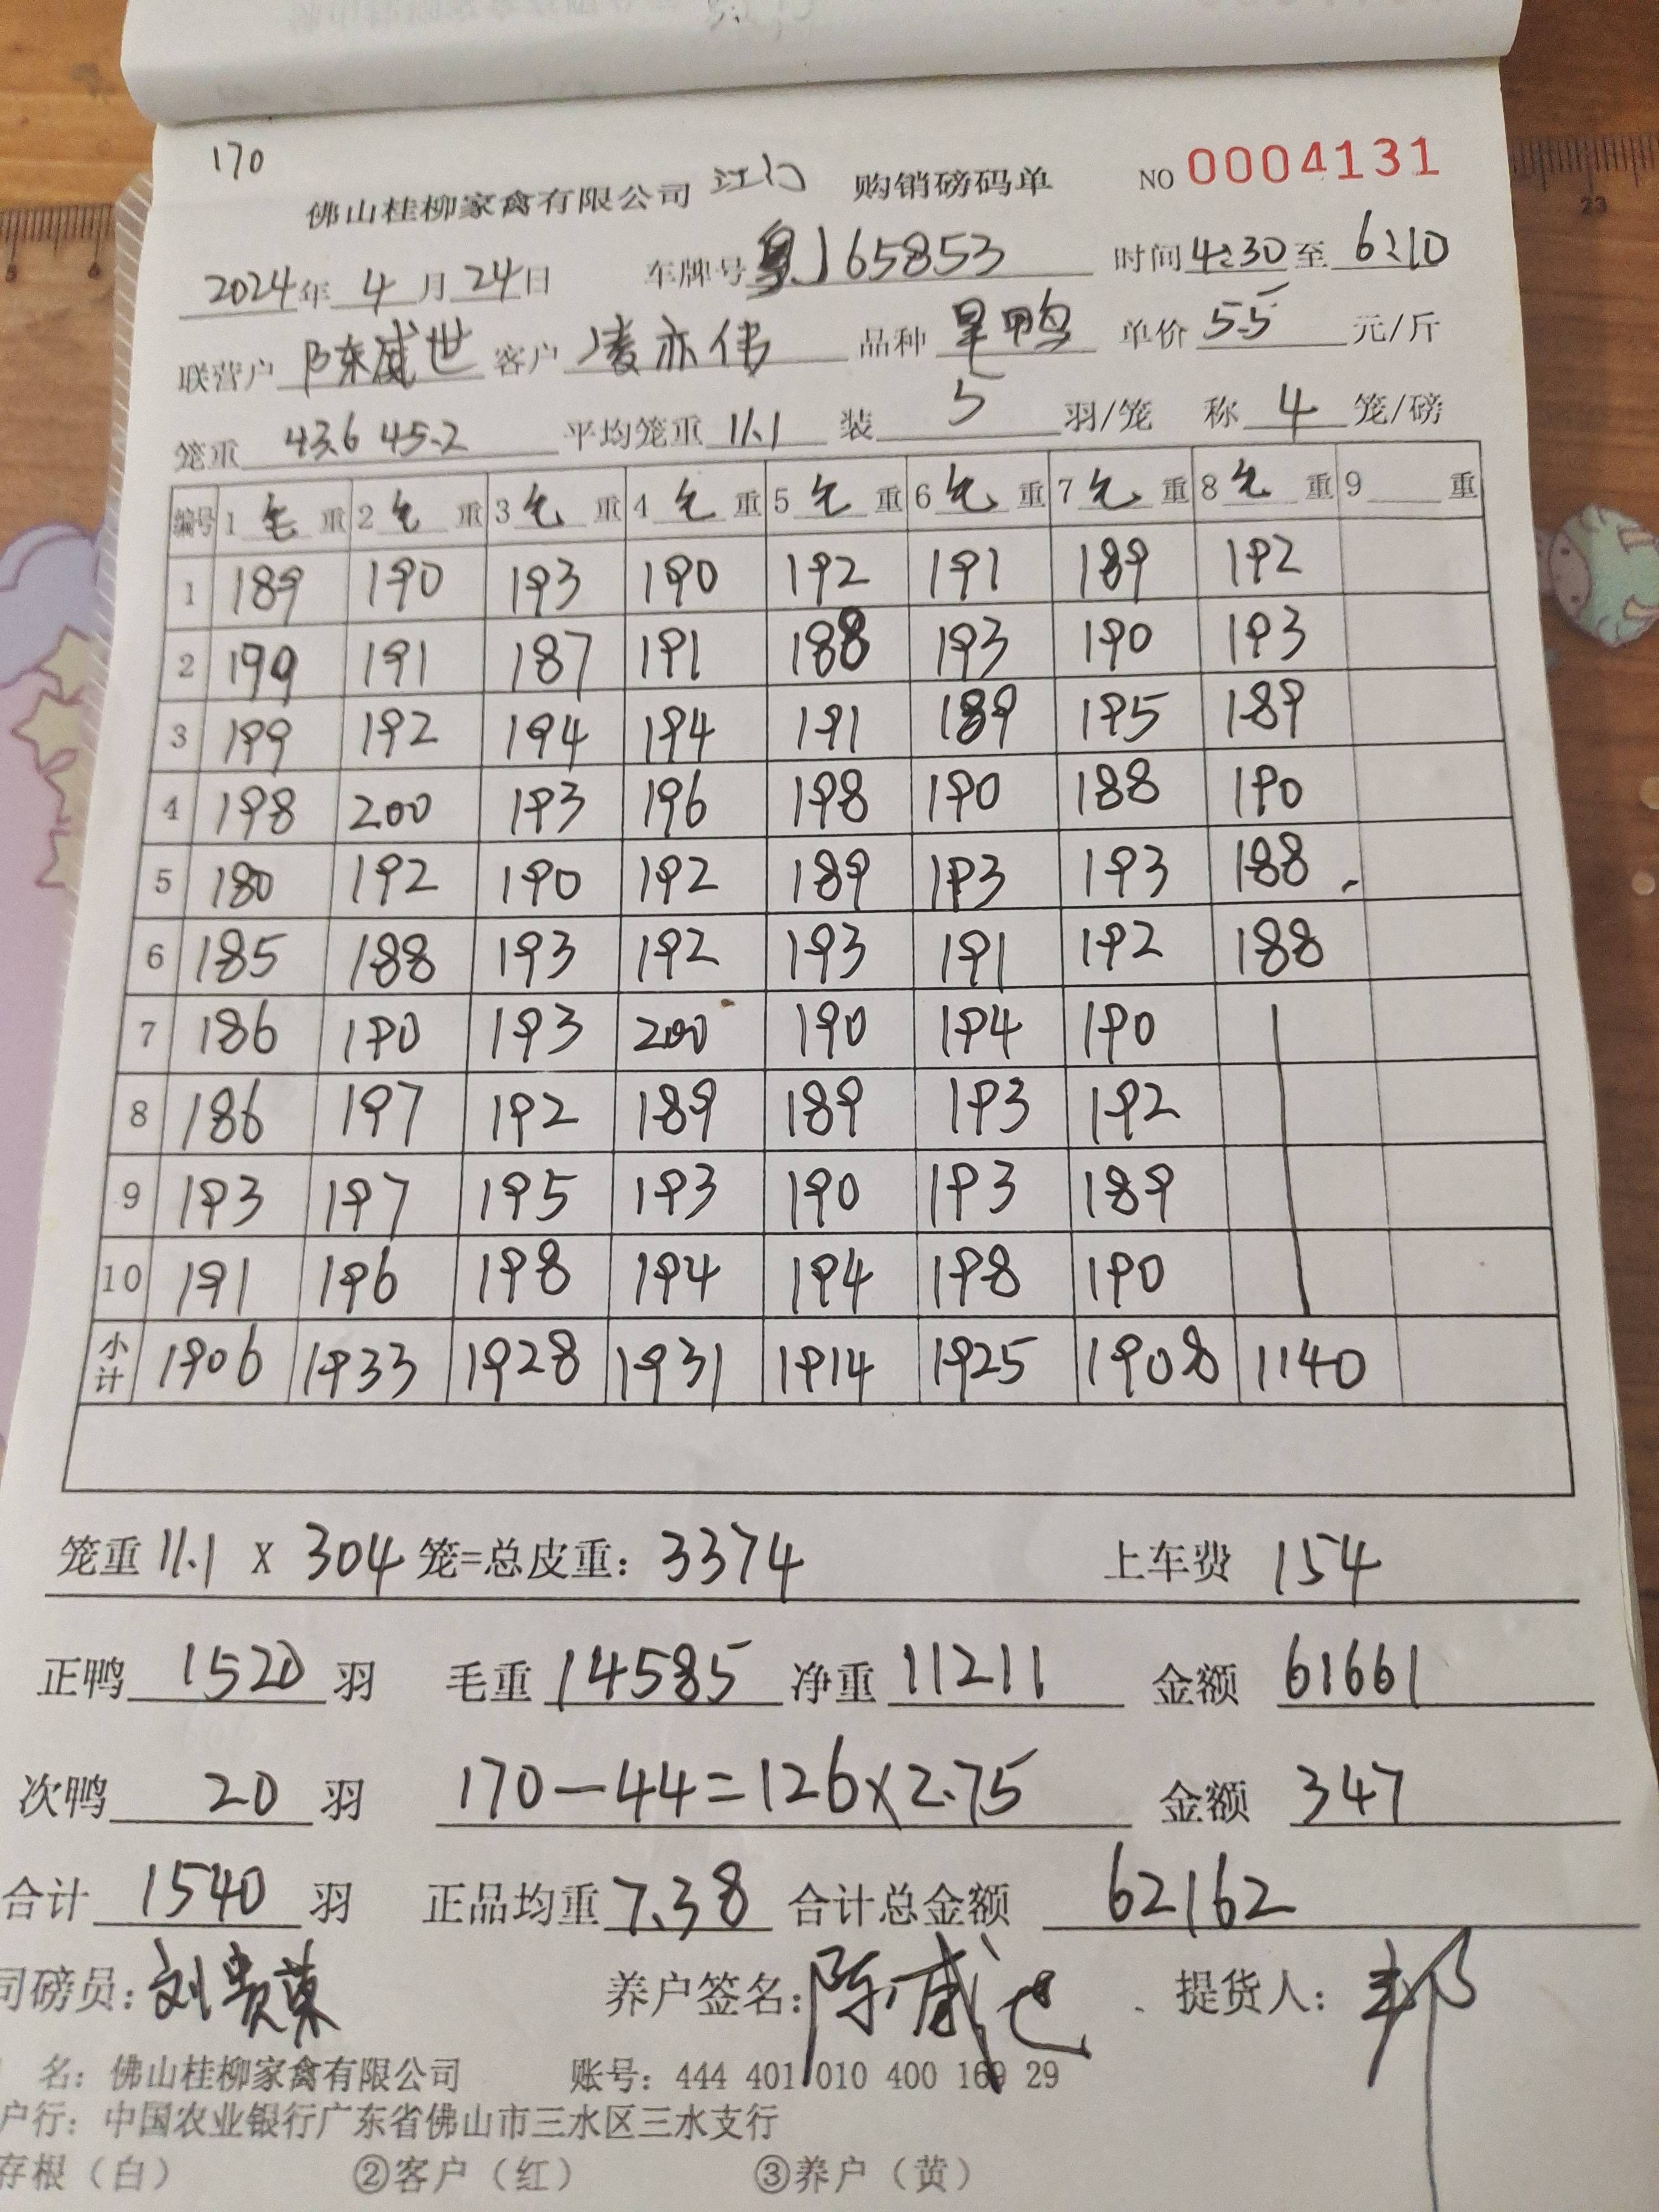 170
佛山桂柳家禽有限公司 江门 购销磅码单 NO 0004131
2024年 4 月 24 日 车牌号 粤J65853 时间 4:30 至 6:10
联营户 陈威世 客户 凌亦伟 品种 旱鸭 单价 5.5 元/斤
笼重 43.6 45.2 平均笼重 11.1 装 5 羽/笼 称 4 笼/磅
编号 1 毛 重 2 毛 重 3 毛 重 4 毛 重 5 毛 重 6 毛 重 7 毛 重 8 毛 重 9 重
1 189 190 193 190 192 191 189 192
2 199 191 187 191 188 193 190 193
3 199 192 194 194 191 189 195 189
4 198 200 193 196 198 190 188 190
5 180 192 190 192 189 193 193 188
6 185 188 193 192 193 191 192 188
7 186 190 193 200 190 194 190
8 186 197 192 189 189 193 192
9 193 197 195 193 190 193 189
10 191 196 198 194 194 198 190
小计 1906 1933 1928 1931 1914 1925 1908 1140
笼重 11.1 X 304 笼=总皮重: 3374 上车费 154
正鸭 1520 羽 毛重 14585 净重 11211 金额 61661
次鸭 20 羽 170-44=126×2.75 金额 347
合计 1540 羽 正品均重 7.38 合计总金额 62162
司磅员: 刘贵荣 养户签名: 陈威世 提货人:
名: 佛山桂柳家禽有限公司 账号: 444 401 010 400 169 29
户行: 中国农业银行广东省佛山市三水区三水支行
存根(白) ②客户(红) ③养户(黄)